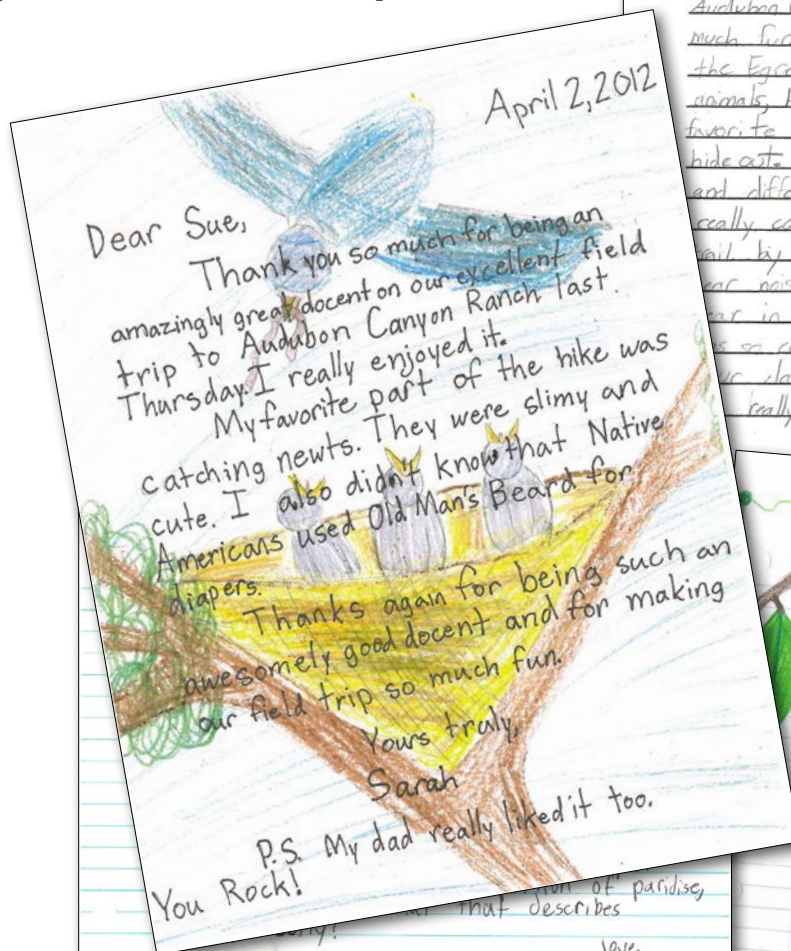 April 2, 2012
Dear Sue,
Thank you so much for being an
amazingly great docent on our excellent field
trip to Audubon Canyon Ranch last
Thursday. I really enjoyed it.
My favorite part of the hike was
catching newts. They were slimy and
cute. I also didn't know that Native
Americans used Old Man's Beard for
diapers.
Thanks again for being such an
awesomely good docent and for making
our field trip so much fun.
Yours truly,
Sarah
P.S. My dad really liked it too.
You Rock!
Audubon
much fun
the Egre
animals,
favorite
hide out.
and diffe
really
by
in
so
really
of paridise,
that describes
love,